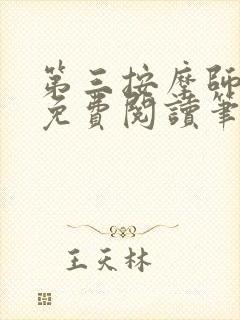 第三按摩師
免費閱讀筆
王天林